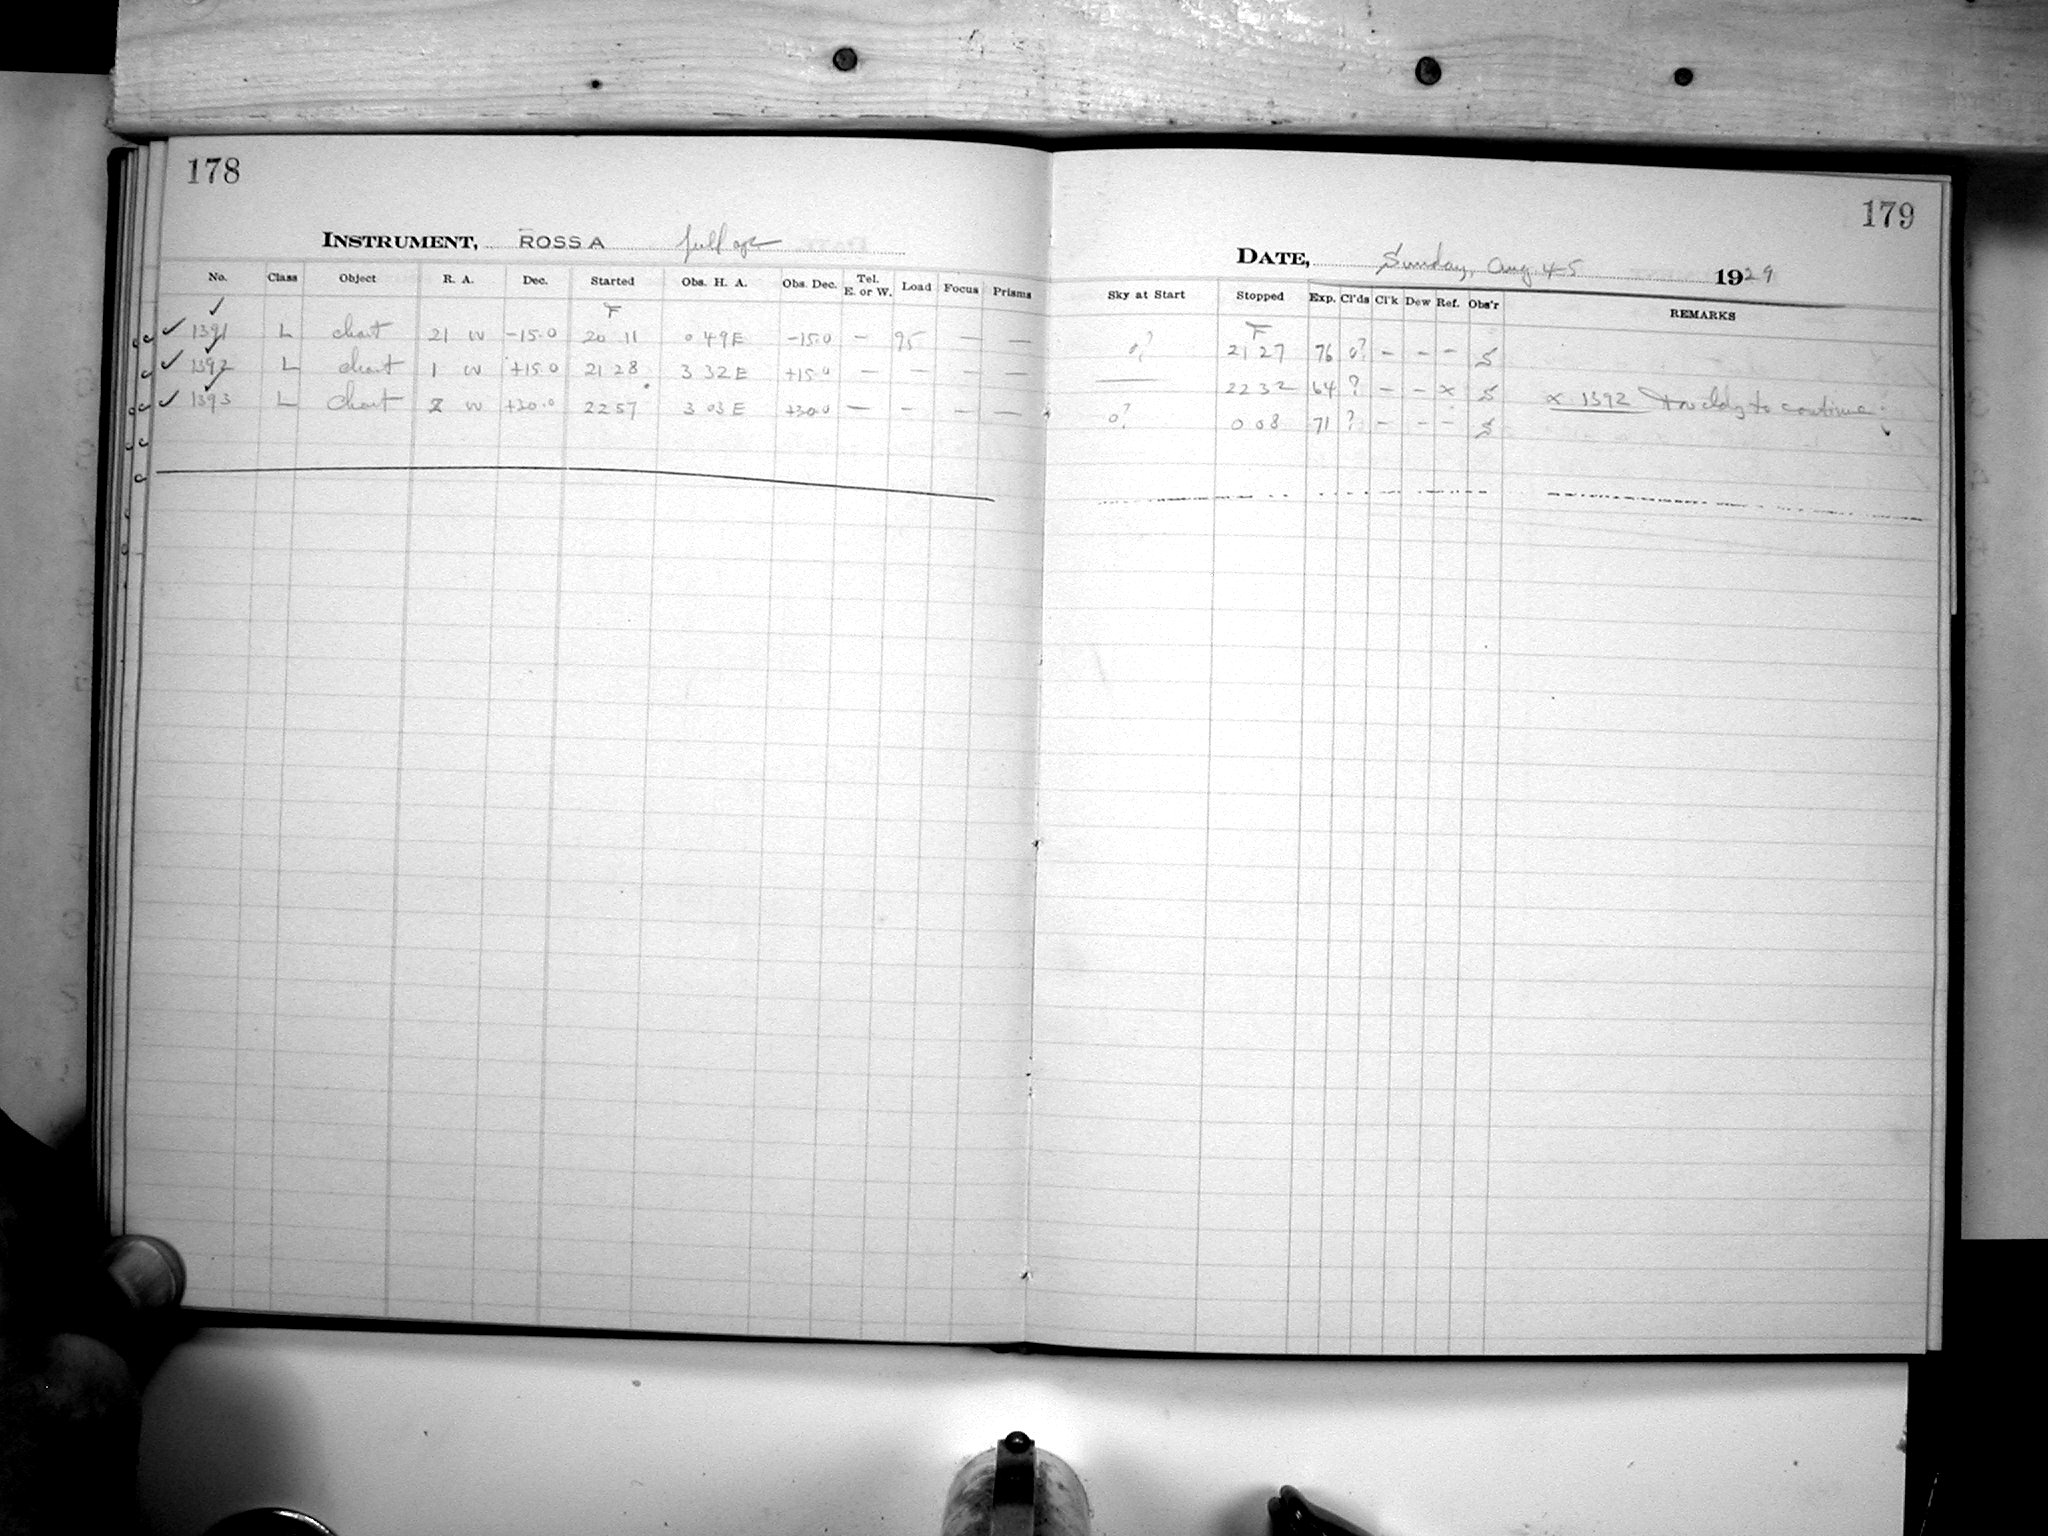 178
INSTRUMENT, ROSS A full ape
No. Class Object R. A. Dec. Started Obs. H. A. Obs. Dec. Tel. E. or W. Load Focus Prisms
F
1391 L chart 21 w -15.0 20 11 0 49 E -15.0 — 95 — —
1392 L chart 1 w +15.0 21 28 3 32 E +15.0 — — — —
1393 L chart 2 w +30.0 22 57 3 03 E +30.0 — — — —
179
DATE, Sunday, Aug. 4-5 1929
Sky at Start Stopped Exp. Cl'ds Cl'k Dew Ref. Obs'r REMARKS
F
0? 21 27 76 0? — — — S
— 22 32 64 ? — — x S x 1392 to continue.
0? 0 08 71 ? — — — S